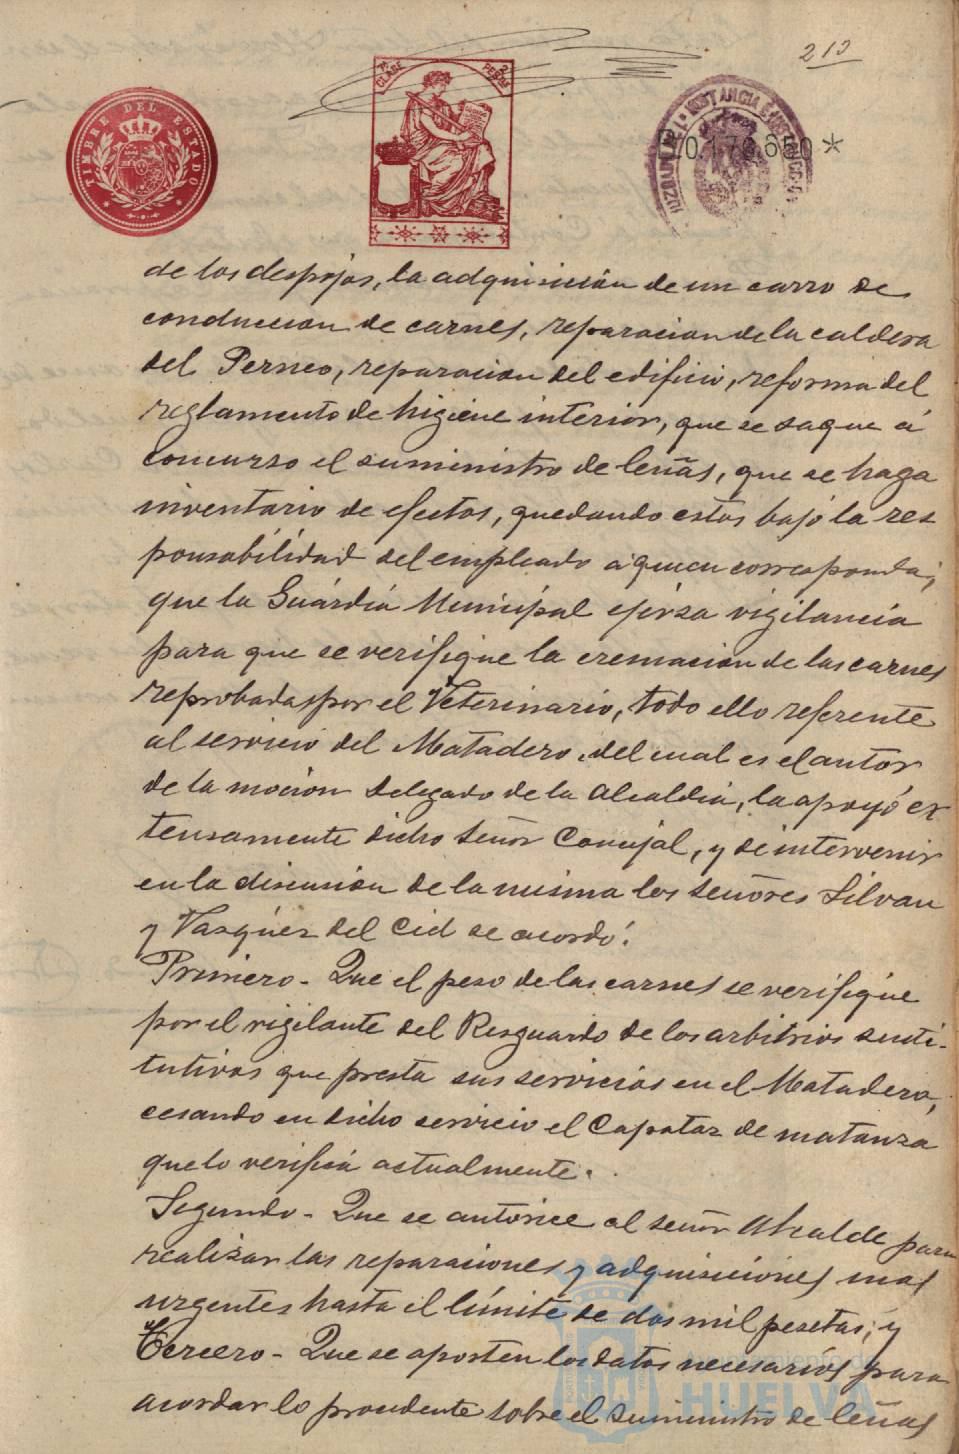 212
TIMBRE DEL ESTADO
7ª CLASE
2 PESETAS
JUZGADO DE 1ª INSTANCIA É INSTRUCCION
0.176.650*
de los despojos, la adquisicion de un carro de
conduccion de carnes, reparacion de la caldera
del Perneo, reparacion del edificio, reforma del
reglamento de higiene interior, que se saque á
concurso el suministro de leñas, que se haga
inventario de efectos, quedando estos bajo la res
ponsabilidad del empleado a quien corresponda;
que la Guardia Municipal ejerza vigilancia
para que se verifique la cremacion de las carnes
reprobadas por el Veterinario, todo ello referente
al servicio del Matadero, del cual es el autor
de la mocion Delegado de la Alcaldia, la apoyó ex
tensamente dicho Señor Concejal, y de intervenir
en la discusion de la misma los señores Silvan
y Vasquez del Cid se acordó:
Primero- Que el peso de las carnes se verifique
por el vigilante del Resguardo de los arbitrios susti-
tutivos que presta sus servicios en el Matadero,
cesando en dicho servicio el Capataz de matanza
que lo verifica actualmente.
Segundo- Que se autorice al señor Alcalde para
realizar las reparaciones y adquisiciones mas
urgentes hasta el límite de dos mil pesetas; y
Tercero- Que se aporten los datos necesarios para
acordar lo procedente sobre el suministro de leñas
Ayuntamiento de
HUELVA